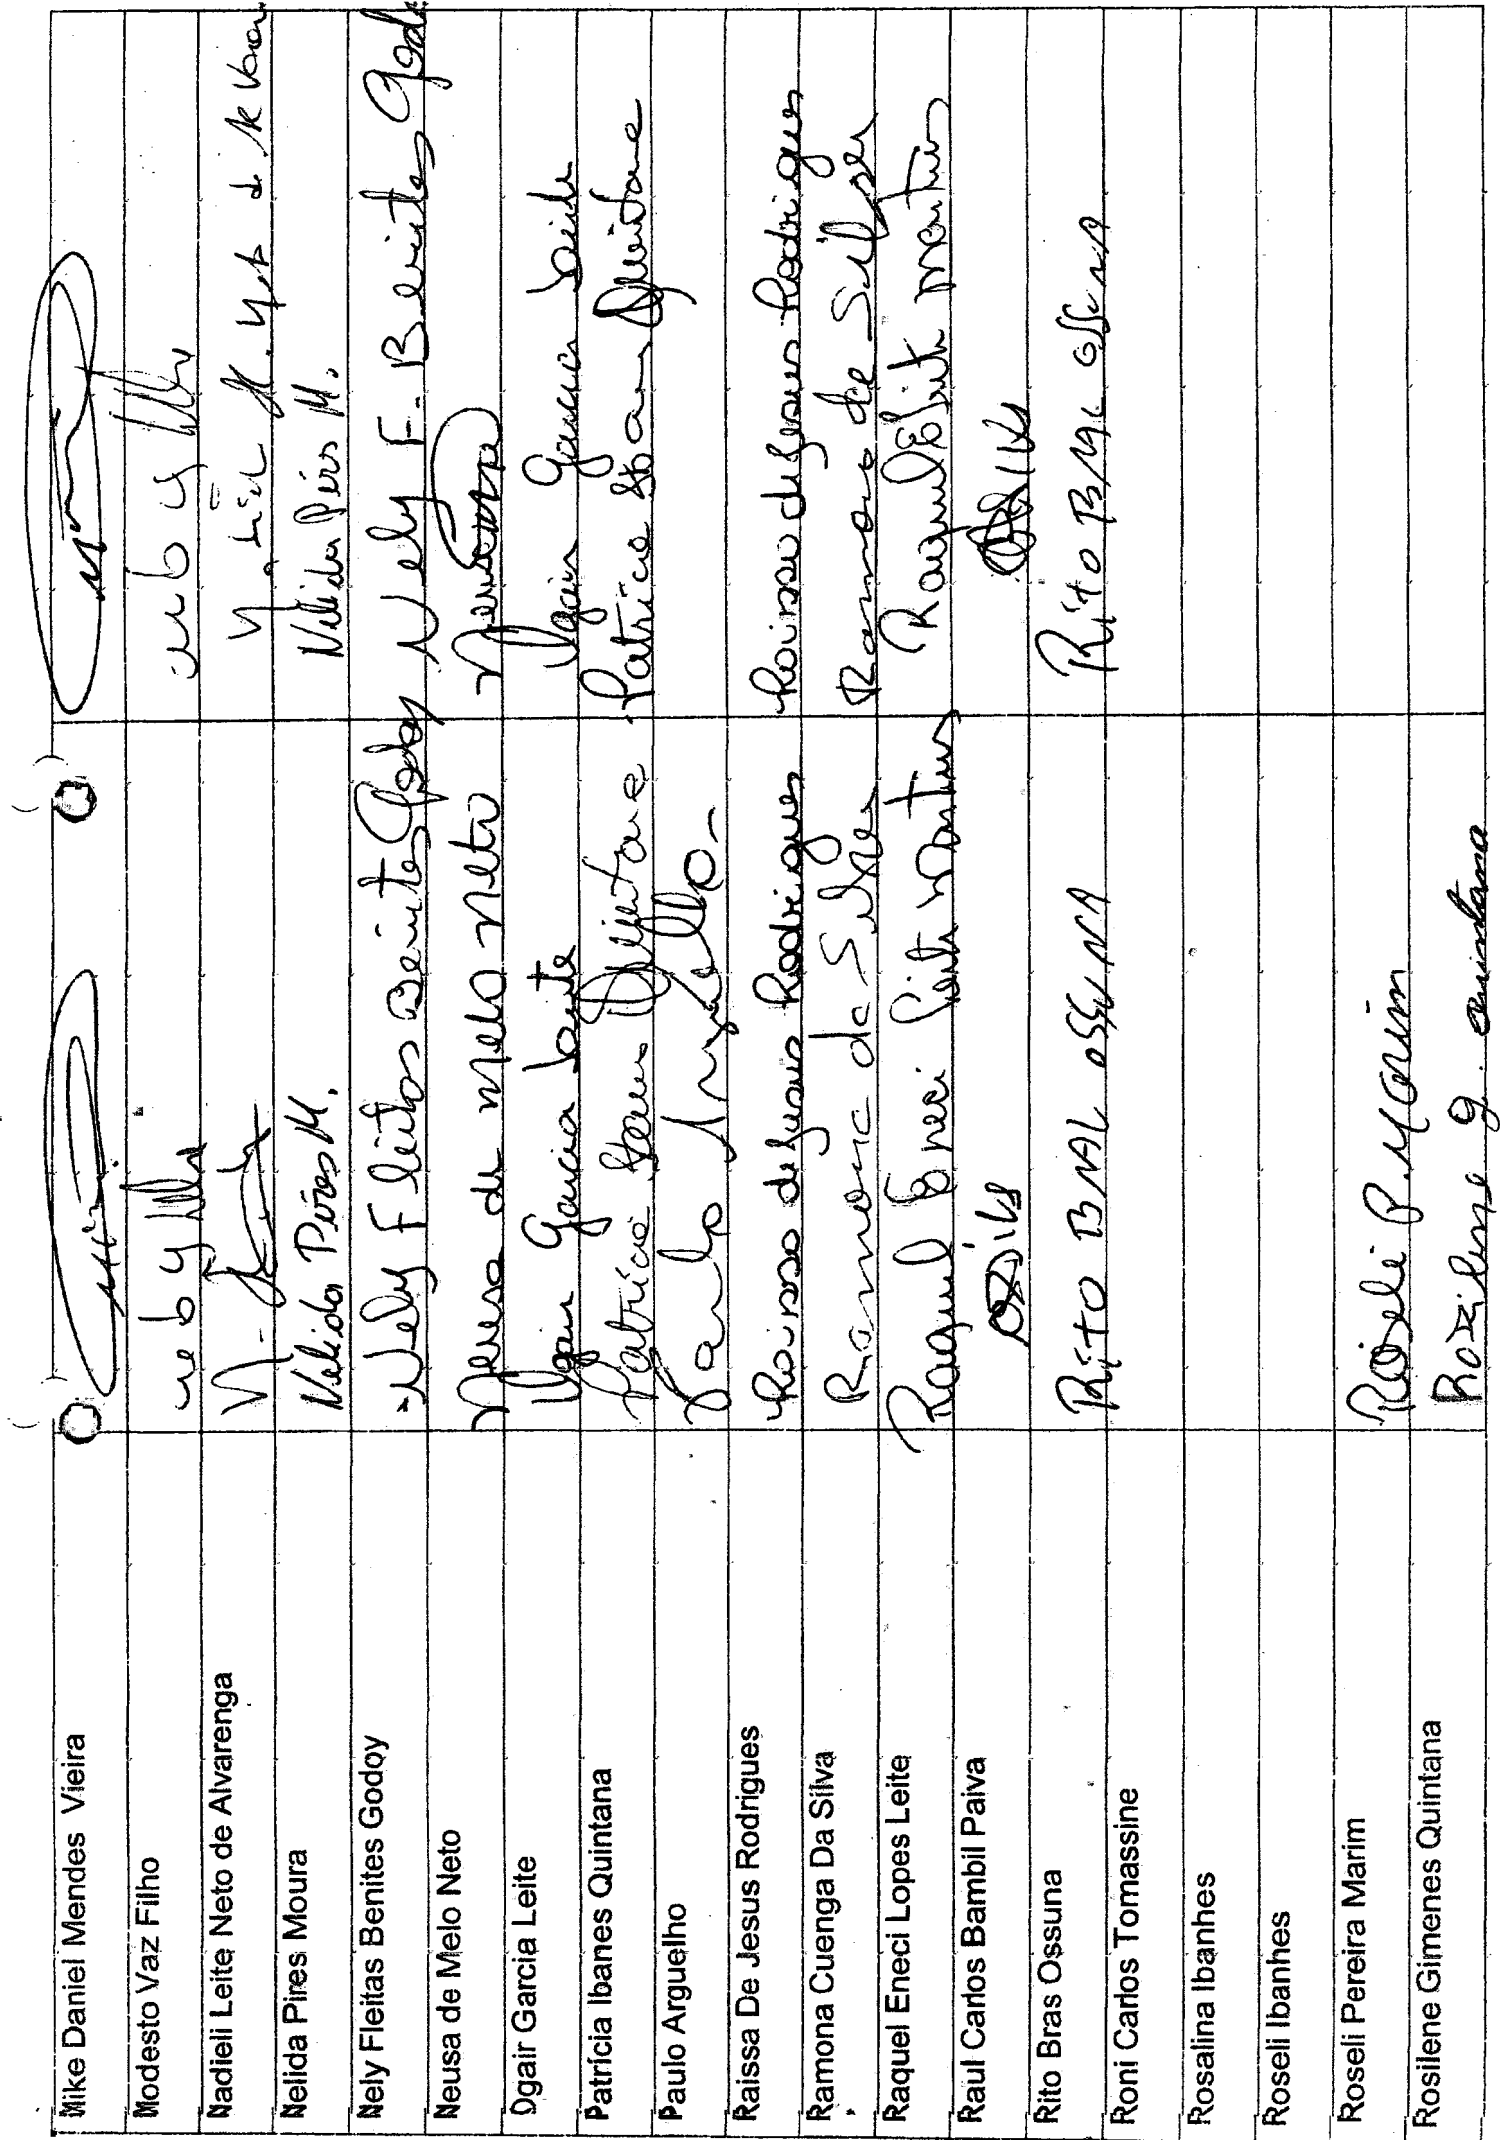 Mike Daniel Mendes Vieira
Modesto Vaz Filho
Nadieli Leite Neto de Alvarenga
Nelida Pires Moura Nelida Pires M. Nelida Pires M.
Nely Fleitas Benites Godoy Nely Fleitas Benites Godoy Nely F. Benites God
Neusa de Melo Neto Neusa de melo neto
Ogair Garcia Leite Ogair Garcia Leite Ogair Garcia Leite
Patrícia Ibanes Quintana Patricia Quintana Patricia Quintana
Paulo Arguelho Paulo Arguelho
Raissa De Jesus Rodrigues Raissa de Jesus Rodrigues Raissa de Jesus Rodrigues
Ramona Cuenga Da Silva Ramona da Silva Ramona da Silva
Raquel Eneci Lopes Leite Raquel Eneci Leite Martins Raquel E Leite Martins
Raul Carlos Bambil Paiva
Rito Bras Ossuna Rito
Roni Carlos Tomassine
Rosalina Ibanhes
Roseli Ibanhes
Roseli Pereira Marim Roseli P. Marim
Rosilene Gimenes Quintana Rozilene g. quintana